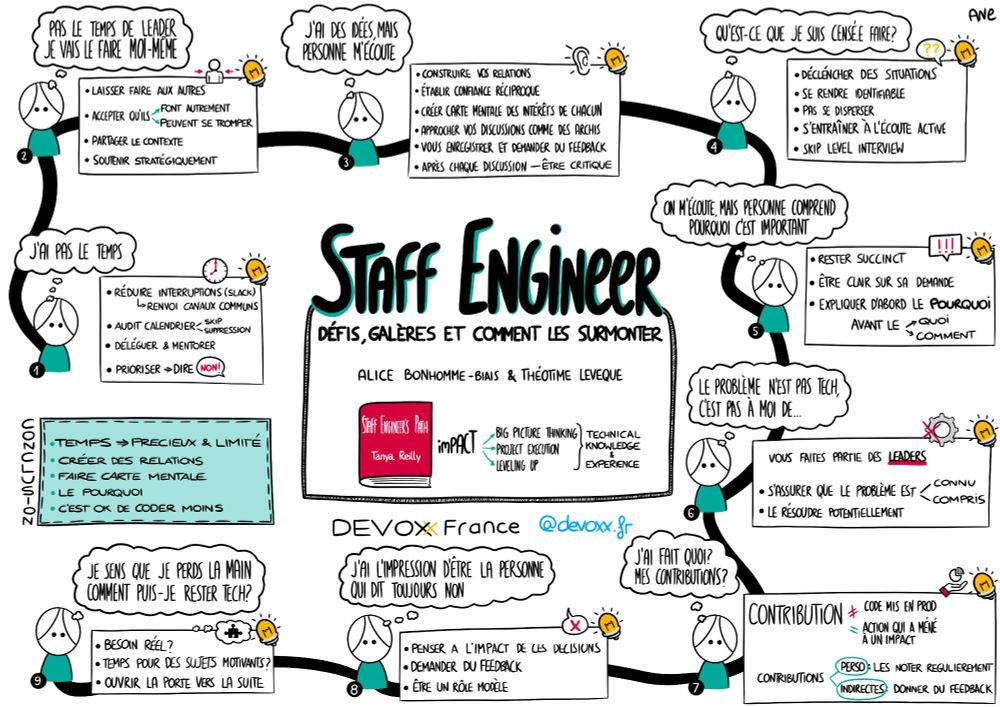 ANE
STAFF ENGINEER
DÉFIS, GALÈRES ET COMMENT LES SURMONTER
ALICE BONHOMME-BIAIS & THÉOTIME LEVEQUE
STAFF ENGINEER'S PATH
TANYA REILLY
IMPACT
BIG PICTURE THINKING
PROJECT EXECUTION
LEVELING UP
TECHNICAL
KNOWLEDGE
&
EXPERIENCE
DEVOXX France @devoxx_fr
J'AI PAS LE TEMPS
1
• RÉDUIRE INTERRUPTIONS (SLACK)
RENVOI CANAUX COMMUNS
• AUDIT CALENDRIER
SKIP
SUPPRESSION
• DÉLÉGUER & MENTORER
• PRIORISER → DIRE NON!
PAS LE TEMPS DE LEADER
JE VAIS LE FAIRE MOI-MÊME
2
• LAISSER FAIRE AUX AUTRES
• ACCEPTER QU'ILS
FONT AUTREMENT
PEUVENT SE TROMPER
• PARTAGER LE CONTEXTE
• SOUTENIR STRATÉGIQUEMENT
J'AI DES IDÉES, MAIS
PERSONNE M'ÉCOUTE
3
• CONSTRUIRE VOS RELATIONS
• ÉTABLIR CONFIANCE RÉCIPROQUE
• CRÉER CARTE MENTALE DES INTÉRÊTS DE CHACUN
• APPROCHER VOS DISCUSSIONS COMME DES ARCHIS
• VOUS ENREGISTRER ET DEMANDER DU FEEDBACK
• APRÈS CHAQUE DISCUSSION — ÊTRE CRITIQUE
QU'EST-CE QUE JE SUIS CENSÉE FAIRE?
4
??
• DÉCLÉNCHER DES SITUATIONS
• SE RENDRE IDENTIFIABLE
• PAS SE DISPERSER
• S'ENTRAÎNER À L'ÉCOUTE ACTIVE
• SKIP LEVEL INTERVIEW
ON M'ÉCOUTE, MAIS PERSONNE COMPREND
POURQUOI C'EST IMPORTANT
5
!!!
• RESTER SUCCINCT
• ÊTRE CLAIR SUR SA DEMANDE
• EXPLIQUER D'ABORD LE POURQUOI
AVANT LE
QUOI
COMMENT
LE PROBLÈME N'EST PAS TECH,
C'EST PAS À MOI DE...
6
VOUS FAITES PARTIE DES LEADERS
• S'ASSURER QUE LE PROBLÈME EST
CONNU
COMPRIS
• LE RÉSOUDRE POTENTIELLEMENT
J'AI FAIT QUOI?
MES CONTRIBUTIONS?
7
CONTRIBUTION
≠ CODE MIS EN PROD
= ACTION QUI A MÉNÉ
À UN IMPACT
CONTRIBUTIONS
PERSO: LES NOTER REGULIEREMENT
INDIRECTES: DONNER DU FEEDBACK
J'AI L'IMPRESSION D'ÊTRE LA PERSONNE
QUI DIT TOUJOURS NON
8
• PENSER A L'IMPACT DE CES DECISIONS
• DEMANDER DU FEEDBACK
• ÊTRE UN RÔLE MODÈLE
JE SENS QUE JE PERDS LA MAIN
COMMENT PUIS-JE RESTER TECH?
9
• BESOIN RÉEL?
• TEMPS POUR DES SUJETS MOTIVANTS?
• OUVRIR LA PORTE VERS LA SUITE
CONCLUSION
• TEMPS → PRECIEUX & LIMITÉ
• CRÉER DES RELATIONS
• FAIRE CARTE MENTALE
• LE POURQUOI
• C'EST OK DE CODER MOINS